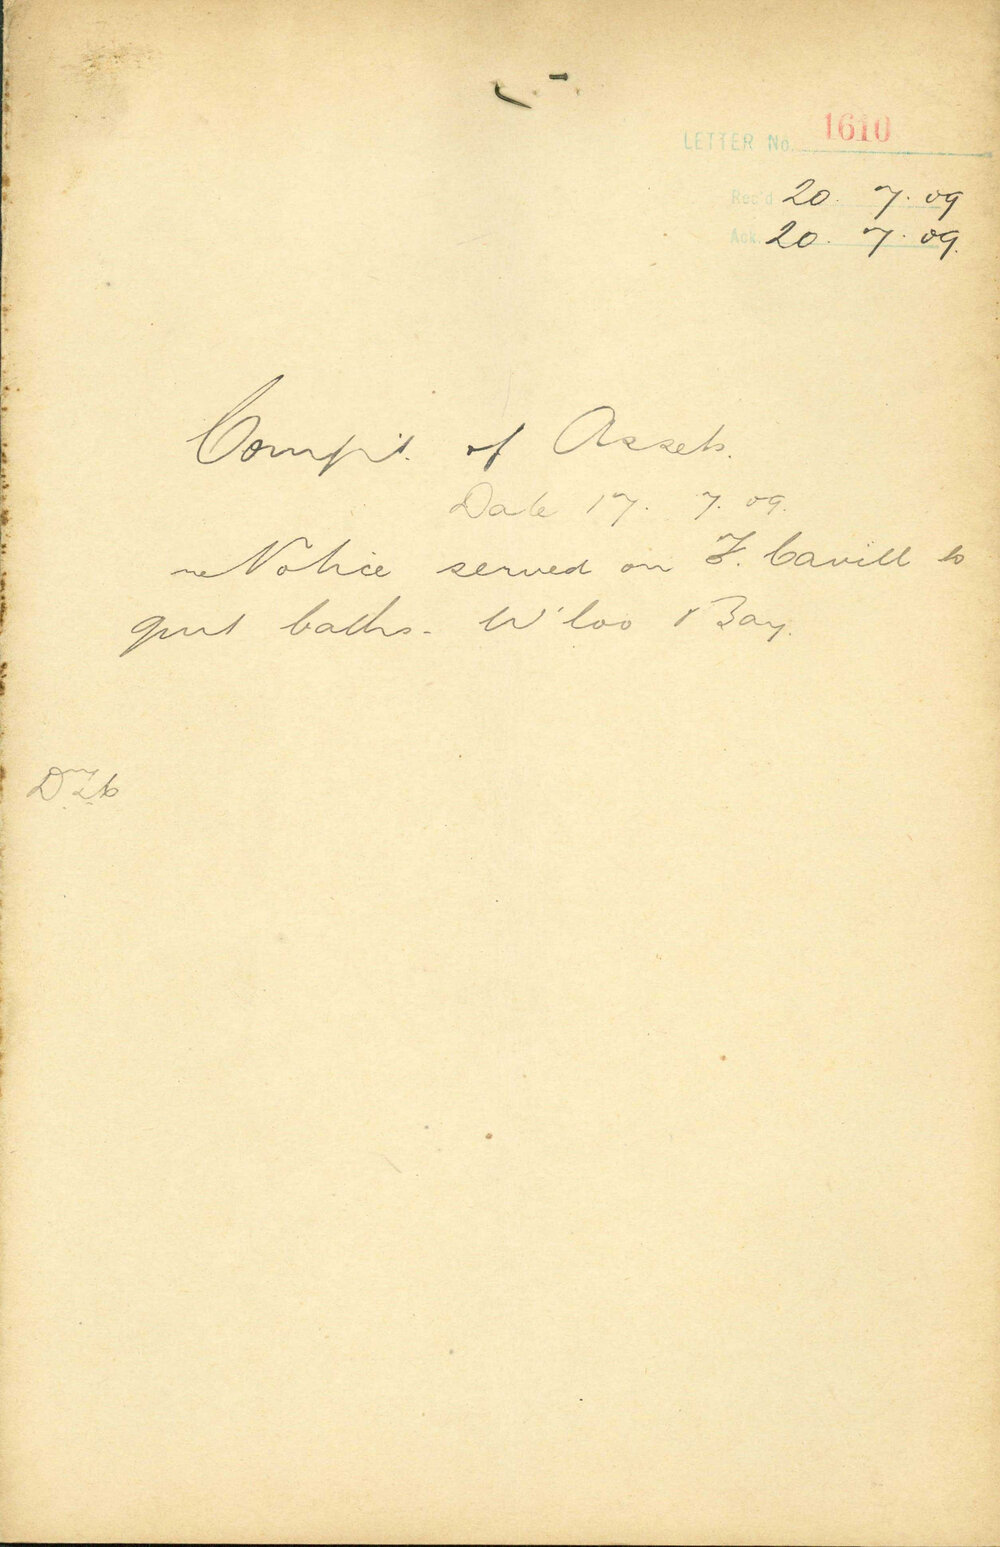 LETTER No. 1610
Rec'd 20. 7. 09
Ack. 20. 7. 09.
Comp't. of Assets.
Date 17. 7. 09.
re Notice served on F. Cavill to
quit baths. W'loo Bay.